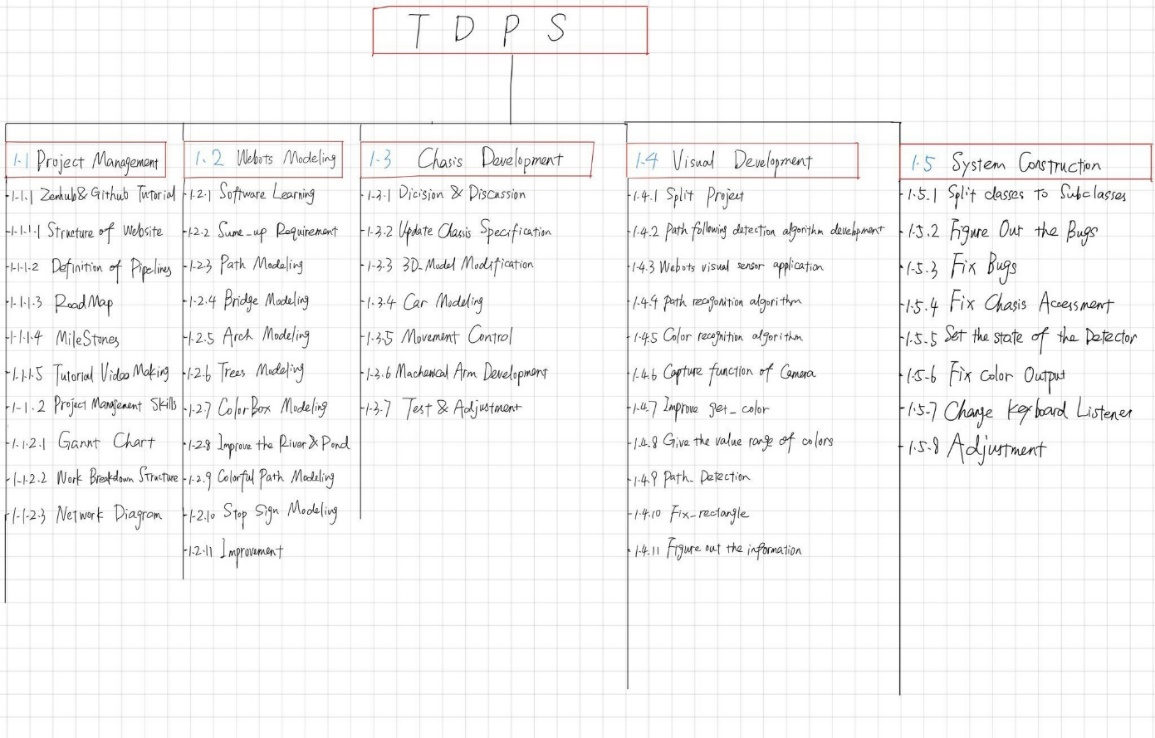 T D P S
1.1 Project Management
1.1.1 Zenhub & Github Tutorial
1.1.1.1 Structure of Website
1.1.1.2 Definition of Pipelines
1.1.1.3 RoadMap
1.1.1.4 MileStones
1.1.1.5 Tutorial Video Making
1.1.2 Project Mangement Skills
1.1.2.1 Gannt Chart
1.1.2.2 Work Breakdown Structure
1.1.2.3 Network Diagram
1.2 Webots Modeling
1.2.1 Software Learning
1.2.2 Sume-up Requirement
1.2.3 Path Modeling
1.2.4 Bridge Modeling
1.2.5 Arch Modeling
1.2.6 Trees Modeling
1.2.7 ColorBox Modeling
1.2.8 Improve the River & Pond
1.2.9 Colorful Path Modeling
1.2.10 Stop Sign Modeling
1.2.11 Improvement
1.3 Chasis Development
1.3.1 Dicision & Discussion
1.3.2 Update Chasis Specification
1.3.3 3D-Model Modification
1.3.4 Car Modeling
1.3.5 Movement Control
1.3.6 Machenical Arm Development
1.3.7 Test & Adjustment
1.4 Visual Development
1.4.1 Split Project
1.4.2 Path following detection algorithm development
1.4.3 Webots visual sensor application
1.4.4 path recognition algorithm
1.4.5 Color recognition algorithm
1.4.6 Capture function of Camera
1.4.7 Improve get_color
1.4.8 Give the value range of colors
1.4.9 Path_Detection
1.4.10 Fix_rectangle
1.4.11 Figure out the information
1.5 System Construction
1.5.1 Split classes To Subclasses
1.5.2 Figure Out the Bugs
1.5.3 Fix Bugs
1.5.4 Fix Chasis Accessment
1.5.5 Set the state of the Detector
1.5.6 Fix color Output
1.5.7 Change Keyboard Listener
1.5.8 Adjustment